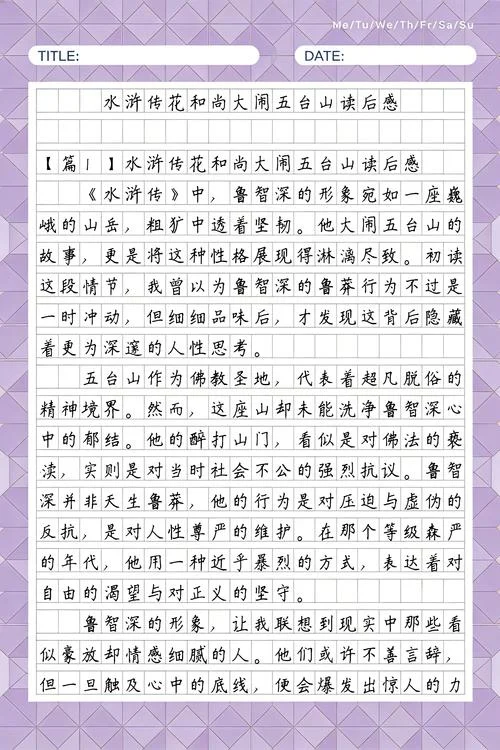 Me/Tu/We/Th/Fr/Sa/Su
TITLE: DATE:
水浒传花和尚大闹五台山读后感
【篇1】水浒传花和尚大闹五台山读后感
《水浒传》中，鲁智深的形象宛如一座巍
峨的山岳，粗犷中透着坚韧。他大闹五台山的
故事，更是将这种性格展现得淋漓尽致。初读
这段情节，我曾以为鲁智深的鲁莽行为不过是
一时冲动，但细细品味后，才发现这背后隐藏
着更为深邃的人性思考。
五台山作为佛教圣地，代表着超凡脱俗的
精神境界。然而，这座山却未能洗净鲁智深心
中的郁结。他的醉打山门，看似是对佛法的亵
渎，实则是对当时社会不公的强烈抗议。鲁智
深并非天生鲁莽，他的行为是对压迫与虚伪的
反抗，是对人性尊严的维护。在那个等级森严
的年代，他用一种近乎暴烈的方式，表达着对
自由的渴望与对正义的坚守。
鲁智深的形象，让我联想到现实中那些看
似豪放却情感细腻的人。他们或许不善言辞，
但一旦触及心中的底线，便会爆发出惊人的力